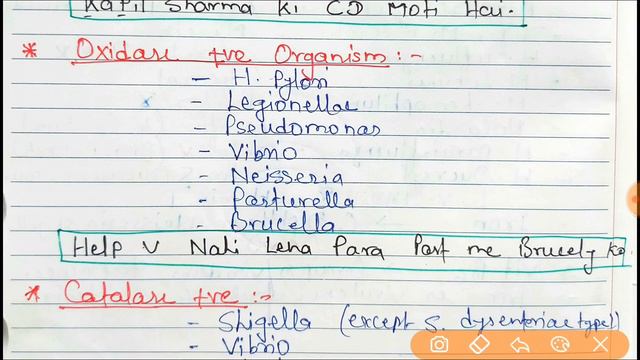 Kapil Sharma Ki CD Moti Hai.
* Oxidase +ve Organism :-
– H. Pylori
– Legionellae
– Pseudomonas
– Vibrio
– Neisseria
– Pasturella
– Brucella
Help V Nahi Lena Para Part me Brucely ko.
* Catalase +ve :-
– Shigella (except S. dysenteriae type 1)
– Vibrio